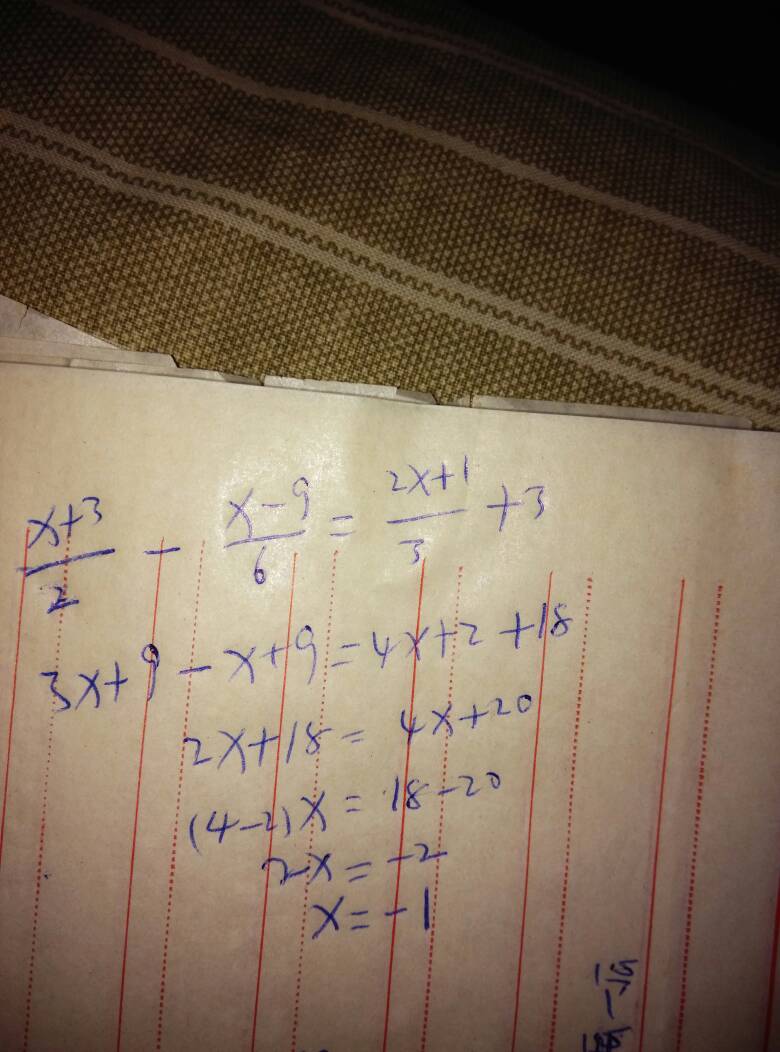 x+3/2 - x-9/6 = 2x+1/3 +3
3x+9-x+9=4x+2+18
2x+18=4x+20
(4-2)x=18-20
2x=-2
x=-1